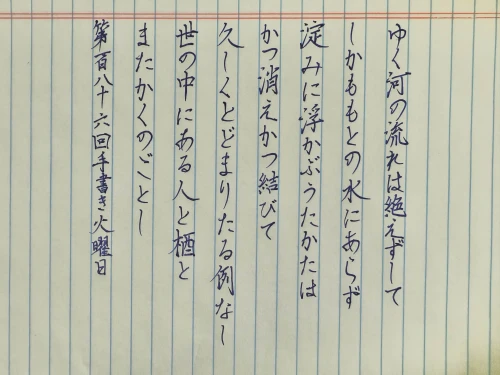 ゆく河の流れは絶えずして
しかももとの水にあらず
淀みに浮かぶうたかたは
かつ消えかつ結びて
久しくとどまりたる例なし
世の中にある人と栖と
またかくのごとし
第百八十六回手書き火曜日